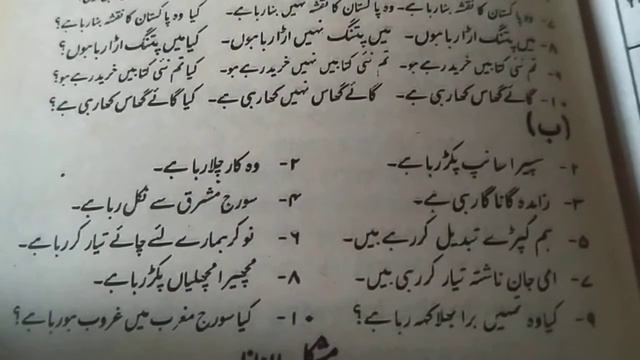 ۷- وہ پاکستان کا نقشہ بنا رہا ہے- وہ پاکستان کا نقشہ نہیں بنا رہا ہے- کیا وہ پاکستان کا نقشہ بنا رہا ہے؟
۸- میں پتنگ اڑا رہا ہوں- میں پتنگ نہیں اڑا رہا ہوں- کیا میں پتنگ اڑا رہا ہوں؟
۹- تم نئی کتابیں خرید رہے ہو- تم نئی کتابیں نہیں خرید رہے ہو- کیا تم نئی کتابیں خرید رہے ہو؟
۱۰- گائے گھاس کھا رہی ہے- گائے گھاس نہیں کھا رہی ہے- کیا گائے گھاس کھا رہی ہے؟
(ب)
۱- سپیرا سانپ پکڑ رہا ہے- ۲- وہ کار چلا رہا ہے-
۳- زاہدہ گانا گا رہی ہے- ۴- سورج مشرق سے نکل رہا ہے-
۵- ہم کپڑے تبدیل کر رہے ہیں- ۶- نوکر ہمارے لئے چائے تیار کر رہا ہے-
۷- امی جان ناشتہ تیار کر رہی ہیں- ۸- مچھیرا مچھلیاں پکڑ رہا ہے-
۹- کیا وہ تمہیں برا بھلا کہہ رہا ہے؟ ۱۰- کیا سورج مغرب میں غروب ہو رہا ہے؟